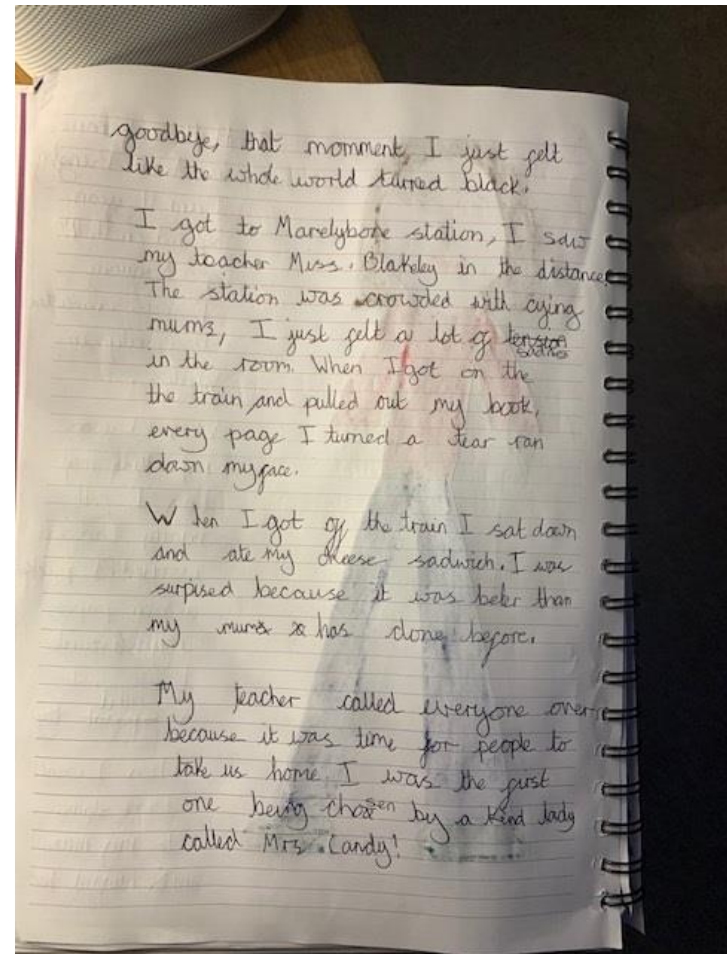 goodbye, that momment, I just felt
like the whole world turred black.
I got to Marelybone station, I saw
my teacher Miss. Blakeley in the distance.
The station was crowded with cying
mums, I just felt a lot of
in the room. When I got on the
the train and pulled out my book,
every page I turned a tear ran
down my face.
When I got off the train I sat down
and ate my cheese sadwich. I was
surpised because it was beter than
my mums has done before.
My teacher called everyone over
because it was time for people to
take us home I was the first
one being chosen by a kind lady
called Mrs. Candy!